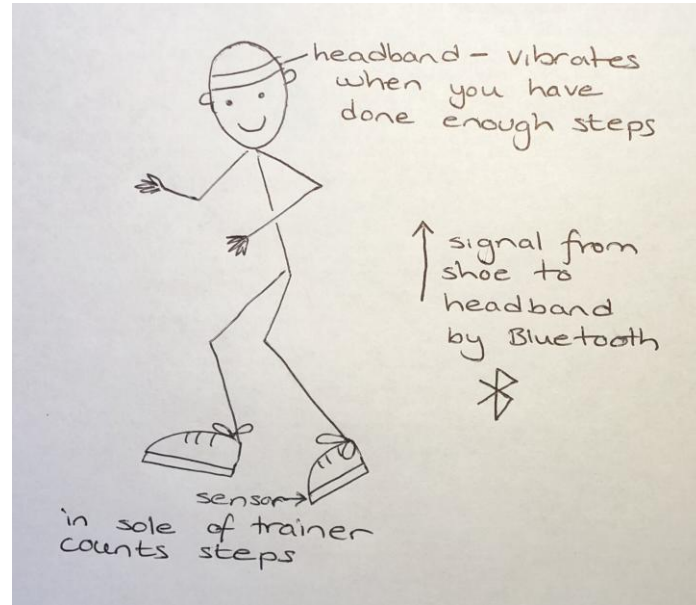 headband - vibrates
when you have
done enough steps
signal from
shoe to
headband
by Bluetooth
sensor→
in sole of trainer
counts steps